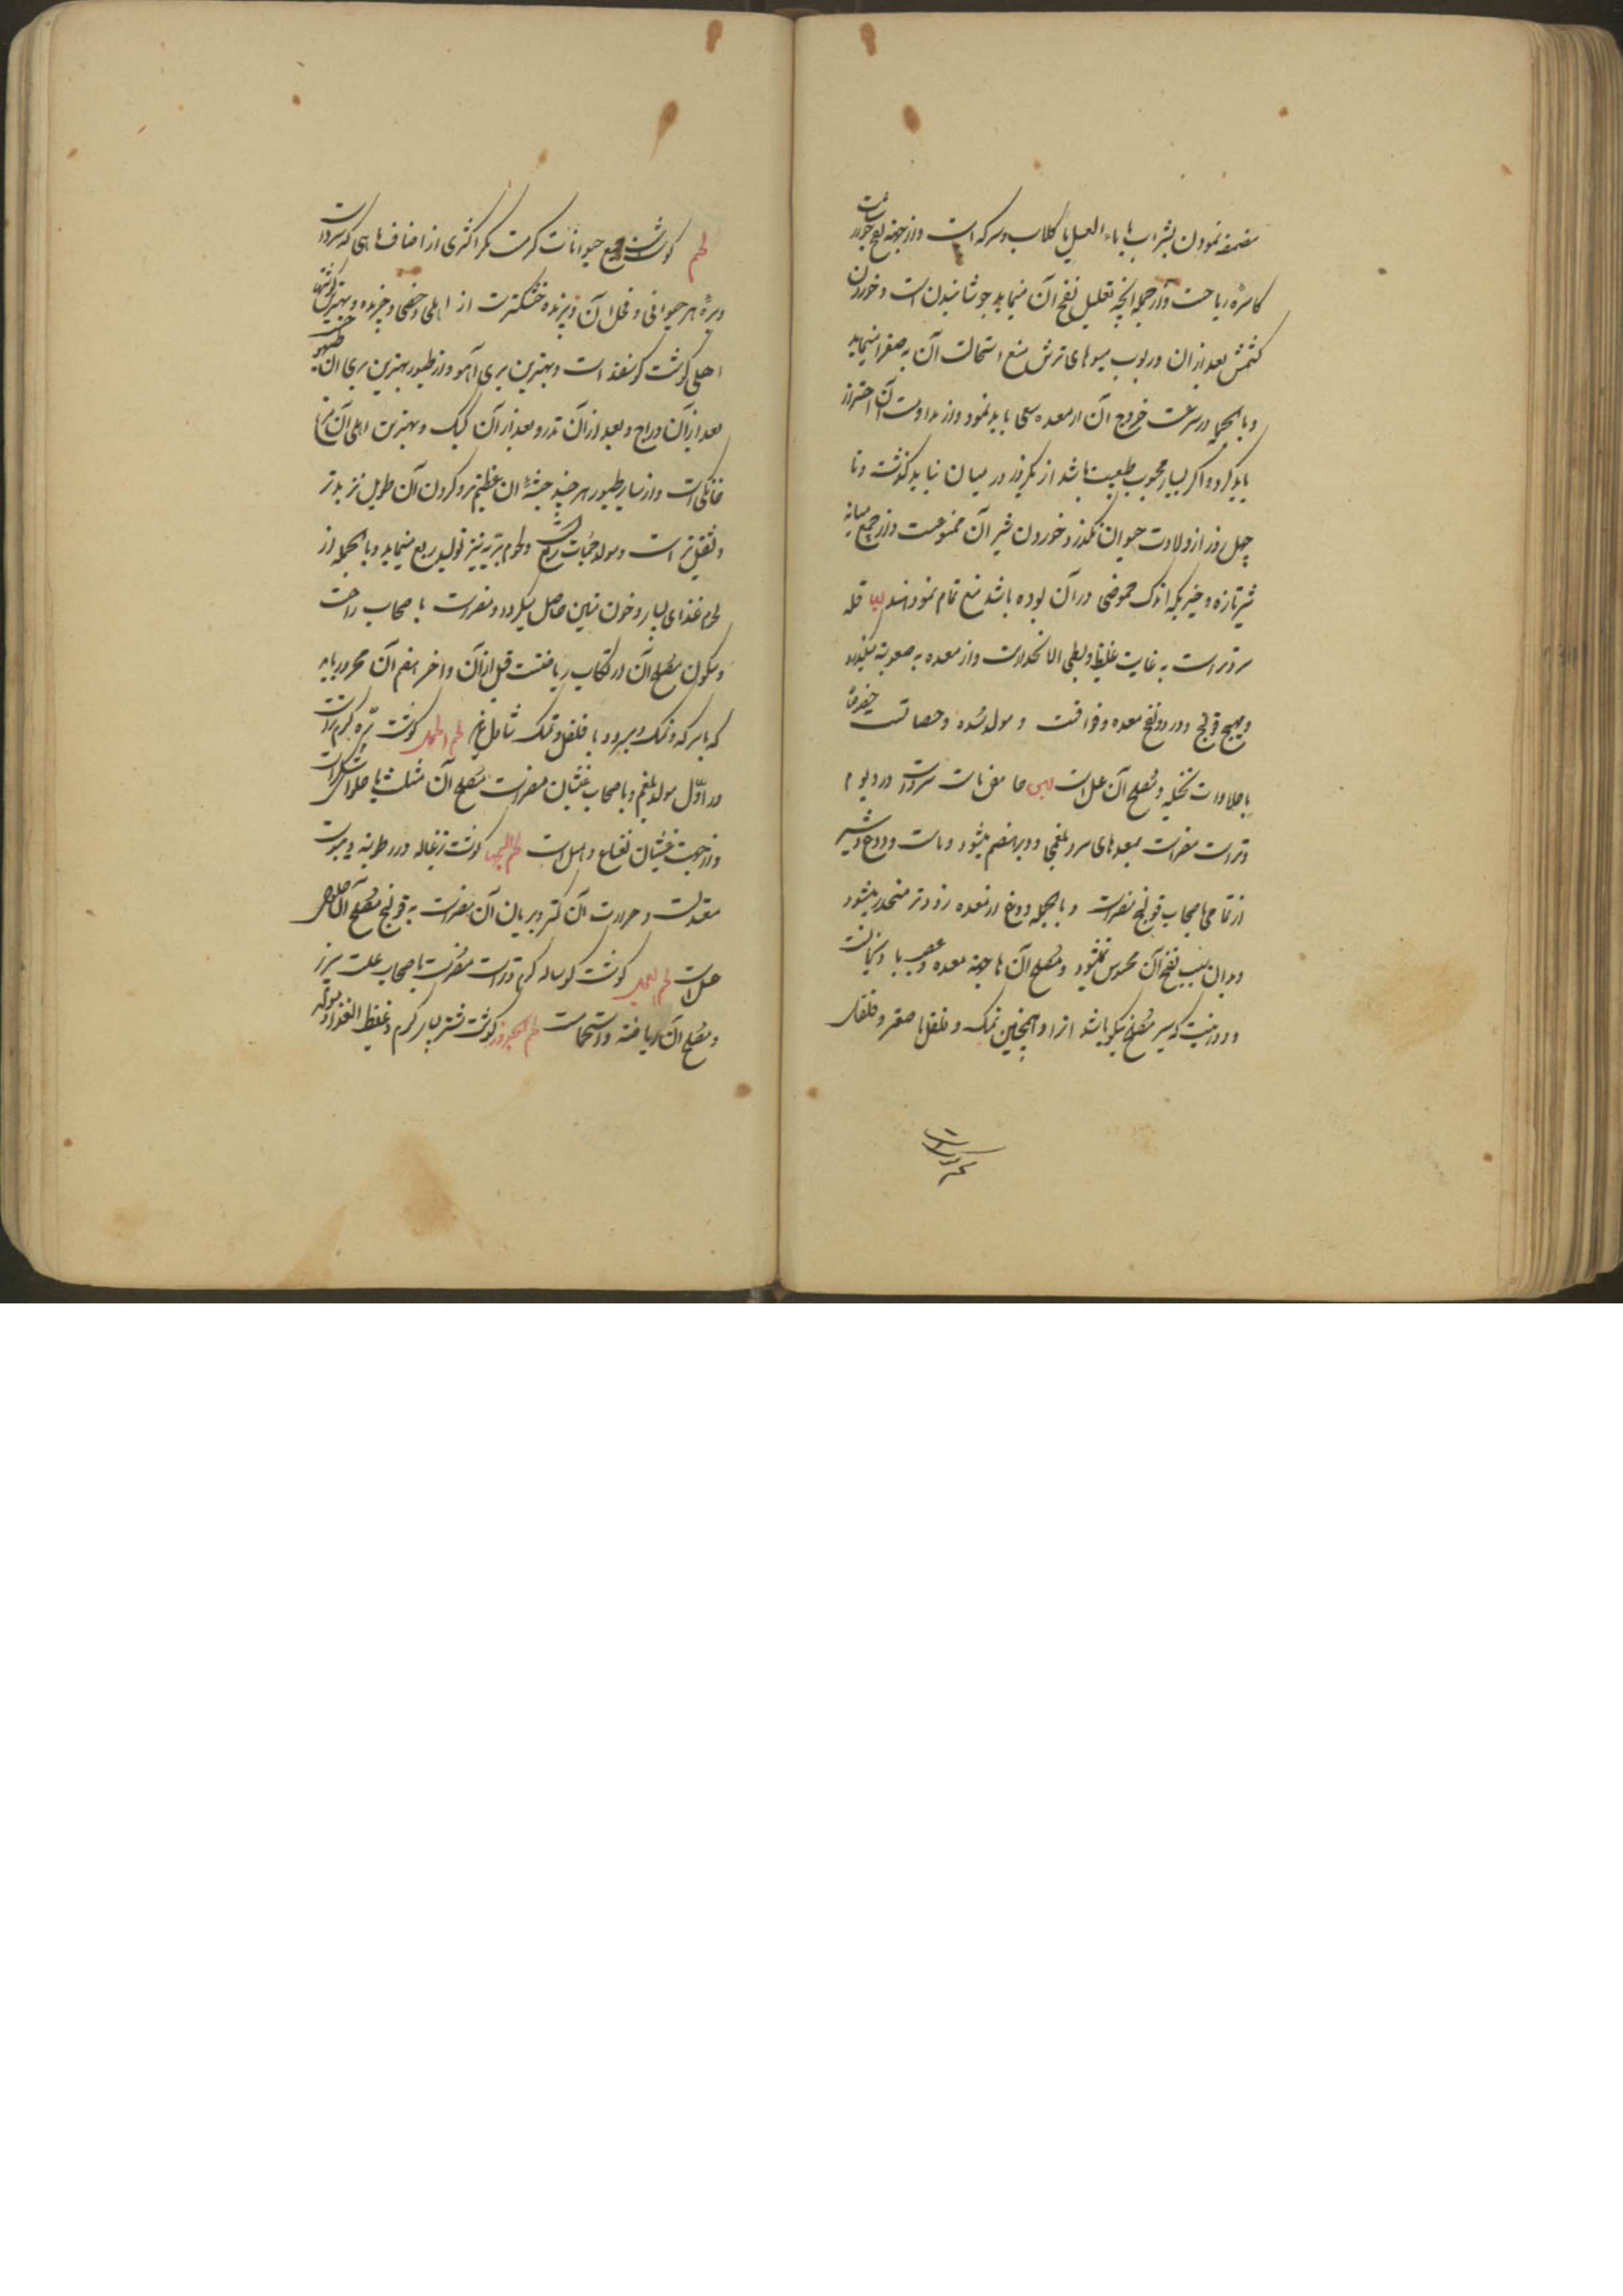 مضمضه نمودن بشراب یا بماء العسل یا کلاب و سرکه است و از جهة نفخ خوردن
کاسره ریاحست و از جمله آنچه تقلیل نفخ آن مینماید جوشانیدن است و خوردن
کشمش بعد از ان و ربوب میوهای ترش منع استحالت آن بصفرا مینماید
و بالجمله در سرعت خروج آن از معده سعی باید نمود و از مداومت آن احتراز
باید کرد و اگر بسیار محبوب طبیعت باشد از یکروز در میان نباید گذشت و تا
چهل روز از ولادت حیوان نگذرد خوردن شیر آن ممنوعست و از جمیع
شیر تازه و خیر یکه اندک حموضی در آن بوده باشد منع تمام نموده‌اند لبا فله
سرد تر است به غایت غلیظ و بطی الانحدار است و از معده به صعوبة میگذرد
و مهیج قولنج و درد و نفخ معده و فواقست و مولد سده و حصاتست
با حلاوات نخیله و مصلح آن عسل است سرد است در دیوم
و تر است مضر است بمعدهای سرد بلغمی و دیر هضم میشود و ماست و دوغ و شیر
از تمامی باصحاب قولنج مضر است و بالجمله دوغ از معده زودتر منحدر میشود
و بدان سبب نفخ آن محسوس نمیشود و مصلح آن با جهة معده و عصب با
و دور نیست که سیر مصلح نیکو باشد از او همچنین نمک و فلفل با صعتر و فلفل
لحم گوشت جمیع حیوانات گرمست مگر اکثری از اصناف ماهی که سرد است
و برهٔ هر حیوانی و فحل آن و پرنده خشکترست از اهلی و خصی و چرنده و بهترین گوشتها
اهلی گوشت گوسفند است و بهترین بری آهو و از طیور بهترین بری ان تیهو
بعد از آن دراج و بعد از آن تذرو بعد از آن کبک و بهترین اهلی آن مرغ
خانگی است و از سایر طیور هر چند جثهٔ ان عظیم تر و گردن آن طویل تر بدتر
و ثقیل تر است و مولد حمیات ربع و لحوم بریه نیز تولید ربع مینماید و بالجمله از
لحوم غذای بسیار و خون متین حاصل میگردد و مضر است با صحاب راحت
و سکون مصلح آن ارتکاب ریاضتست قبل از آن و اخر هضم آن محرور باید
که با سرکه و نمک و مبرود با فلفل و نمک تناول نماید لحم الحمل گوشت بره گرم تر است
در اوّل مولد بلغم و با صحاب غثیان مضر است مصلح آن مثلث با حلوای شکر است
و از جهت غثیان نعناع و هیل است لحم الجدی گوشت بزغاله در رطوبة و یبوست
معتدلست و حرارت آن کمتر و بریان آن مضر است به قولنج مصلح آن حلوای
عسل است لحم العجل گوشت گوساله گرم و تر است مضرست با صحاب علت سپرز
و مصلح آن ریاضة و استحمام است لحم الجزور گوشت شتر بسیار گرم و غلیظ الغذا و مولد